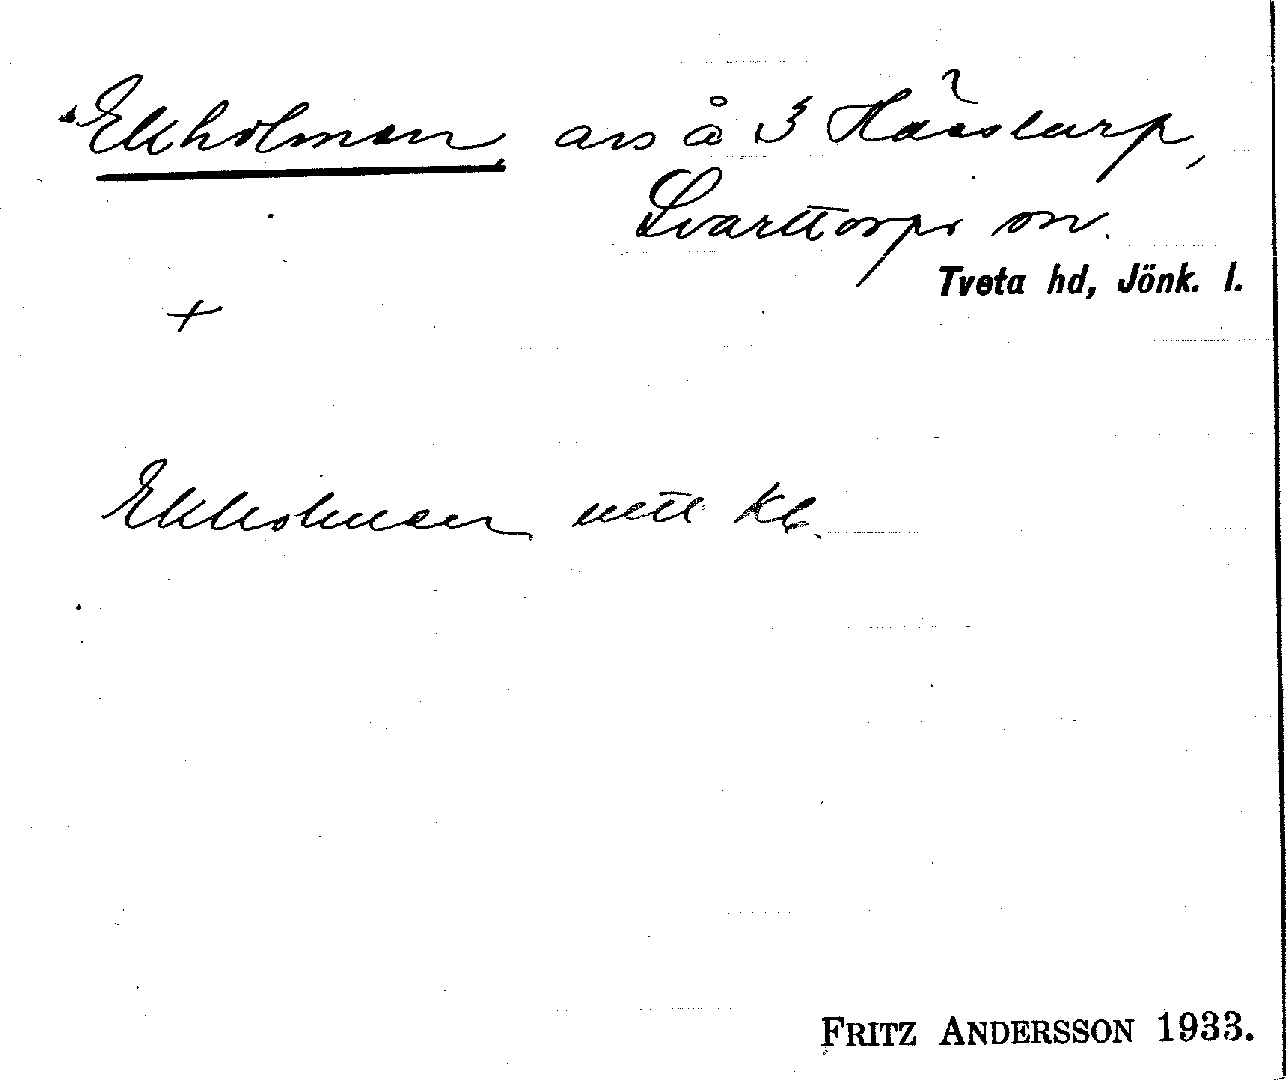 Ekholmen, avs å 3 Hässtarp,
Svarttorps sn.
Tveta hd, Jönk. l.
+
Ekholmen nttl Kb.
FRITZ ANDERSSON 1933.